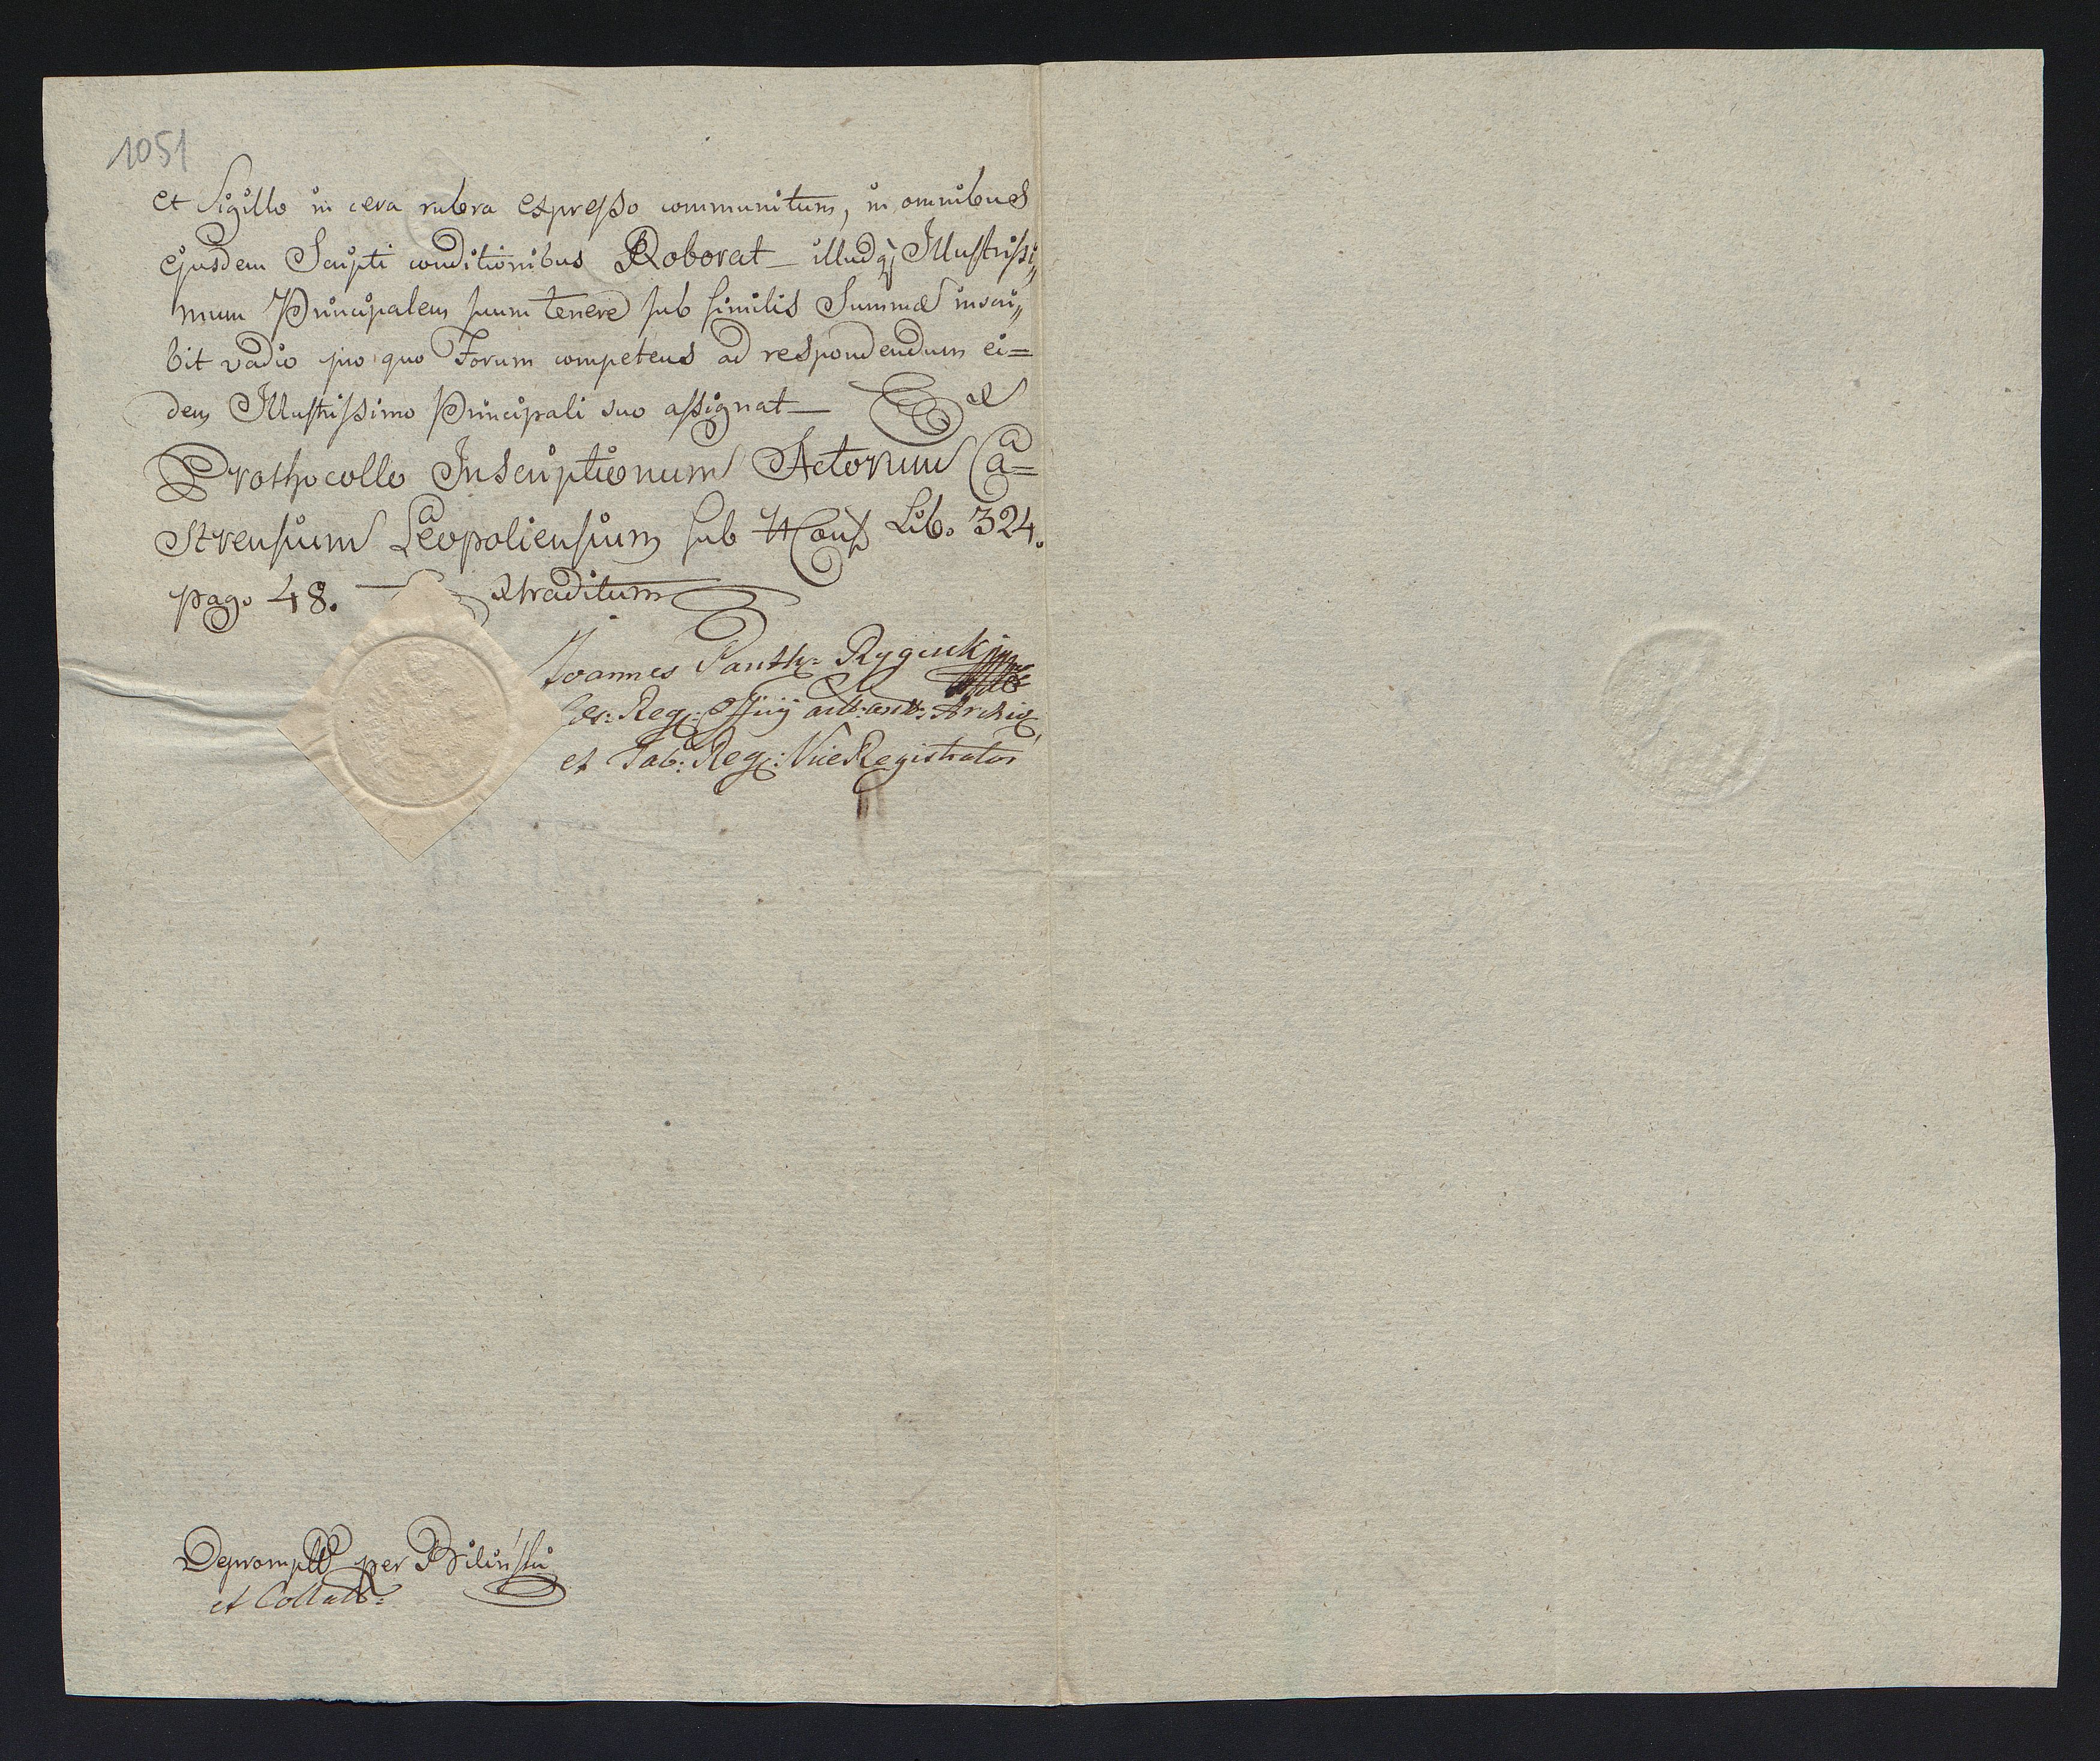 1051
et Sigillo in cera rubra expresso communitum, in omnibus
ejusdem Scripti conditionibus Roborat — illudq; Illustrissi„
mum Principalem suum tenere sub similis Summae inscri„
bit vadio pro quo Forum competens ad respondendum ei=
dem Illustrissimo Principali suo assignat — Ex
Prothocollo Inscriptionum Actorum Ca=
strensium Leopoliensium sub Lib. 324.
pag. 48. Extraditum
Joannes
Reg: Archiv,
et Tab: Reg: ViceRegistrator
Deprompt per Biliński
et Collat: